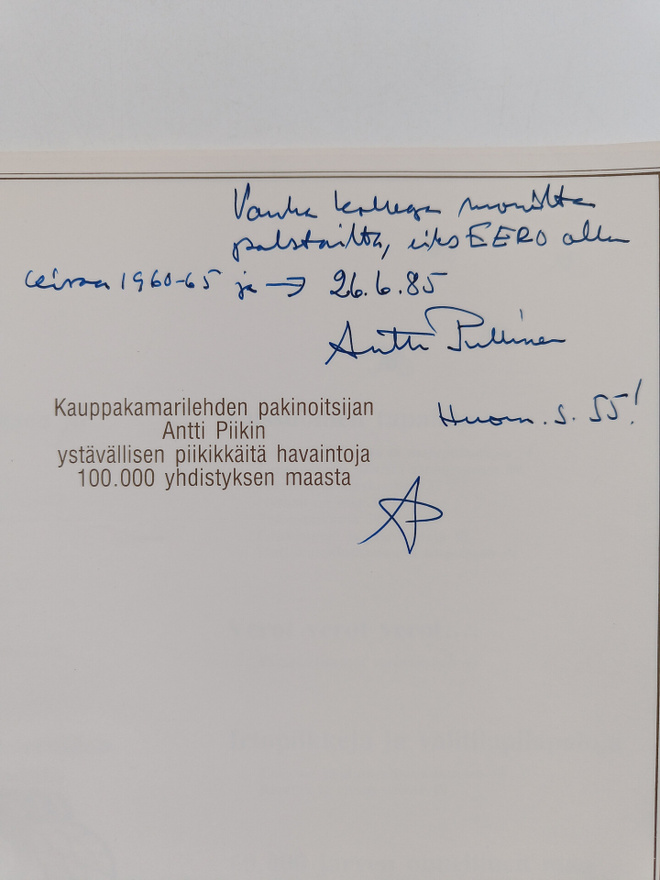 Vanha kollega monilta
palstoilta, EERO
1960-65 ja → 26.6.85
Antti Pullinen
Huom. s. 55!
Kauppakamarilehden pakinoitsijan
Antti Piikin
ystävällisen piikikkäitä havaintoja
100.000 yhdistyksen maasta
AP